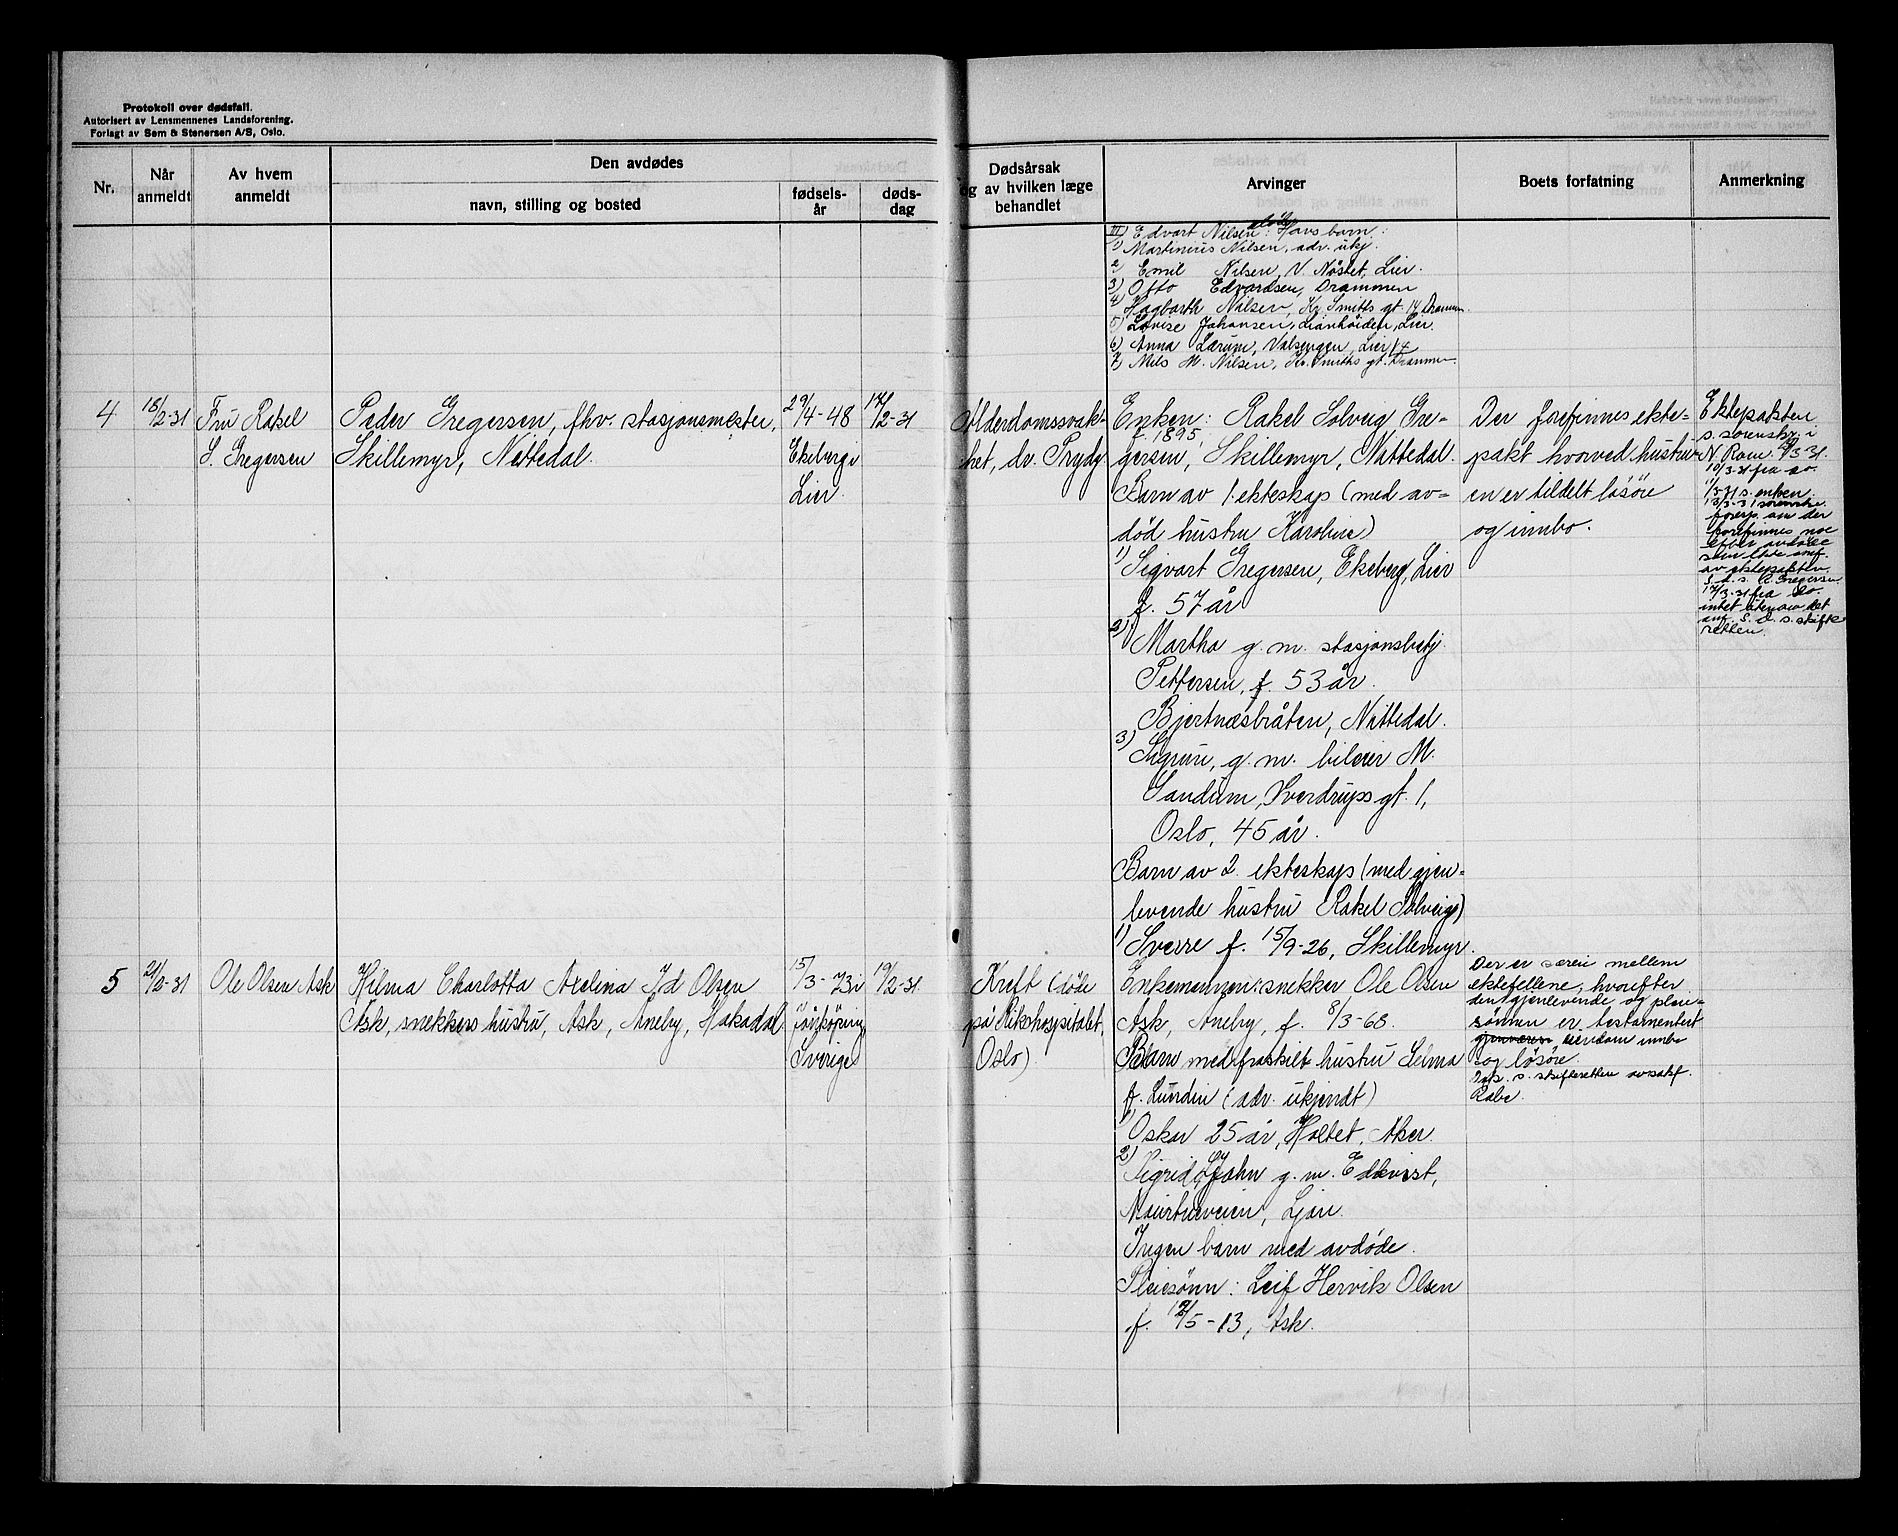 Protokoll over dødsfall.
Autorisert av Lensmennenes Landsforening.
Forlagt av Sem & Stenersen A/S, Oslo.
Nr.
Når anmeldt
Av hvem anmeldt
Den avdødes
navn, stilling og bosted
fødsels-år
døds-dag
Dødsårsak
og av hvilken læge
behandlet
Arvinger
Boets forfatning
Anmerkning
III) Edvart Nilsen: Hans barn:
1) Martinius Nilsen, adr. ukj.
2) Emil Nilsen, V. Nøstet, Lier.
3) Otto Edvardsen, Drammen
4) Hagbarth Nilsen, Kr. Smitts gt. 14, Drammen.
5) Lovise Johansen, Lianhøiden, Lier.
6) Anna Lærum, Valsengen, Lier
7) Nils M. Nilsen, Kr. Smiths gt. 14 Drammen.
4
18/2-31
Fru Rakel
S. Gregersen
Peder Gregersen, fhv. stasjonsmester,
Skillemyr, Nittedal.
29/4-48
Ekeberg i
Lier.
17/2-31
Alderdomssvak-
het, dr. Prydz
Enken: Rakel Solveig Gre-
f. 1895,
gersen, Skillemyr, Nittedal.
Barn av 1. ekteskap (med av-
død hustru Karoline)
1) Sigvart Gregersen, Ekeberg, Lier
f. 57 år
2) Martha g. m. stasjonsbetj.
Pettersen, f. 53 år.
Bjertnæsbråten, Nittedal.
3) Sigrun, g. m. bileier M.
Sandum, Sverdrups gt. 1,
Oslo, 45 år.
Barn av 2. ekteskap (med gjen-
levende hustru Rakel Solveig)
1) Sverre f. 15/9-26, Skillemyr.
Der forefinnes ekte-
pakt hvorved hustru-
en er tildelt løsøre
og innbo.
Ektepakten
s. sorenskr. i
N. Rom. 9/3-31.
10/3-31 fra do.
11/3-31 s. enken.
13/3-31 sorenskr.
foresp. om der
forefinnes noe
efter avdøde
som ikke omf.
av ektepakten.
S. d. s. R. Gregersen
17/3-31 fra do.
intet utenom det
omf. S. d. s. skifte
retten.
5
21/2-31
Ole Olsen Ask
Hilma Charlotta Avelina Id Olsen
Ask, snekkers hustru, Ask, Aneby, Hakadal.
15/3-73 i
Jönköping
Sverige
19/2-31
Kreft (døde
på Rikshospitalet,
Oslo)
Enkemannen: snekker Ole Olsen
Ask, Aneby, f. 8/3-68.
Barn med fraskilt hustru Selma
f. Lundin (adr. ukjendt)
1) Oskar 25 år, Holtet, Aker.
2) Sigrid g. m. Edkvist,
Ljan.
Ingen barn med avdøde.
Pleiesønn: Leif Henrik Olsen
f. 12/5-13, Ask.
Der er særeie mellem
ektefellene, hvorefter
den gjenlevende og pleie-
sønnen er testamentert
eiendom innbo
og løsøre.
s. skifteretten avsatt.